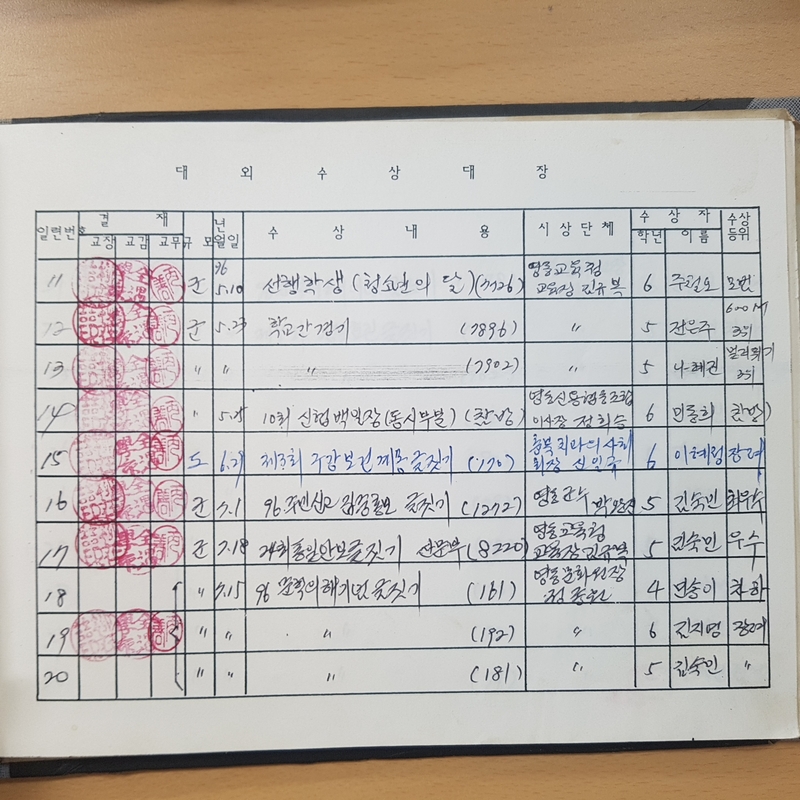 대 외 수 상 대 장
일련번호 결 재 규모 년월일 수 상 내 용 시상단체 수 상 자 수상등위
교장 교감 교무 학년 이름
96
11 군 5.10 선행학생 (청소년의 달) (7726) 영동교육청 6 모범
교육장 김규복
12 군 5.23 학교간경기 (7896) 〃 5 전은주 600M
3위
13 〃 〃 (7902) 〃 5 나혜권 멀리뛰기
3위
14 〃 5.25 10회 신협백일장 (동시부분) (찬방) 영동신용협동조합 6 민동희
이사장 정희승
15 도 6.29 제3회 구강보건 글짓기 (170) 충북치과의사회 6 이혜령 장려
회장 신일규
16 군 7.1 96. 주민신고 글짓기 (1272) 영동군수 5 김숙민 최우수
17 군 7.18 24회통일안보글짓기 산문부 (8220) 영동교육청 5 김숙민 우수
교육장 김규복
18 〃 7.15 96 문학의해기념글짓기 (161) 영동문화원장 4
19 〃 〃 〃 (192) 〃 6 김지영 장려
20 〃 〃 〃 (181) 〃 5 김숙민 〃